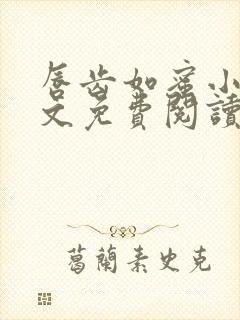 唇齿如蜜小
文免費閱讀
葛蘭素史克